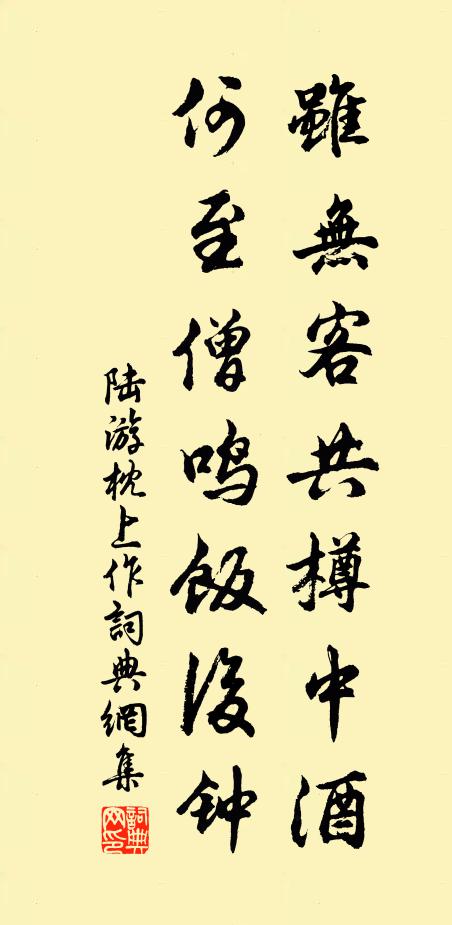 雖無客共樽中酒
何至僧鳴飯後钟
陆游枕上作詞典網集
詞典網印